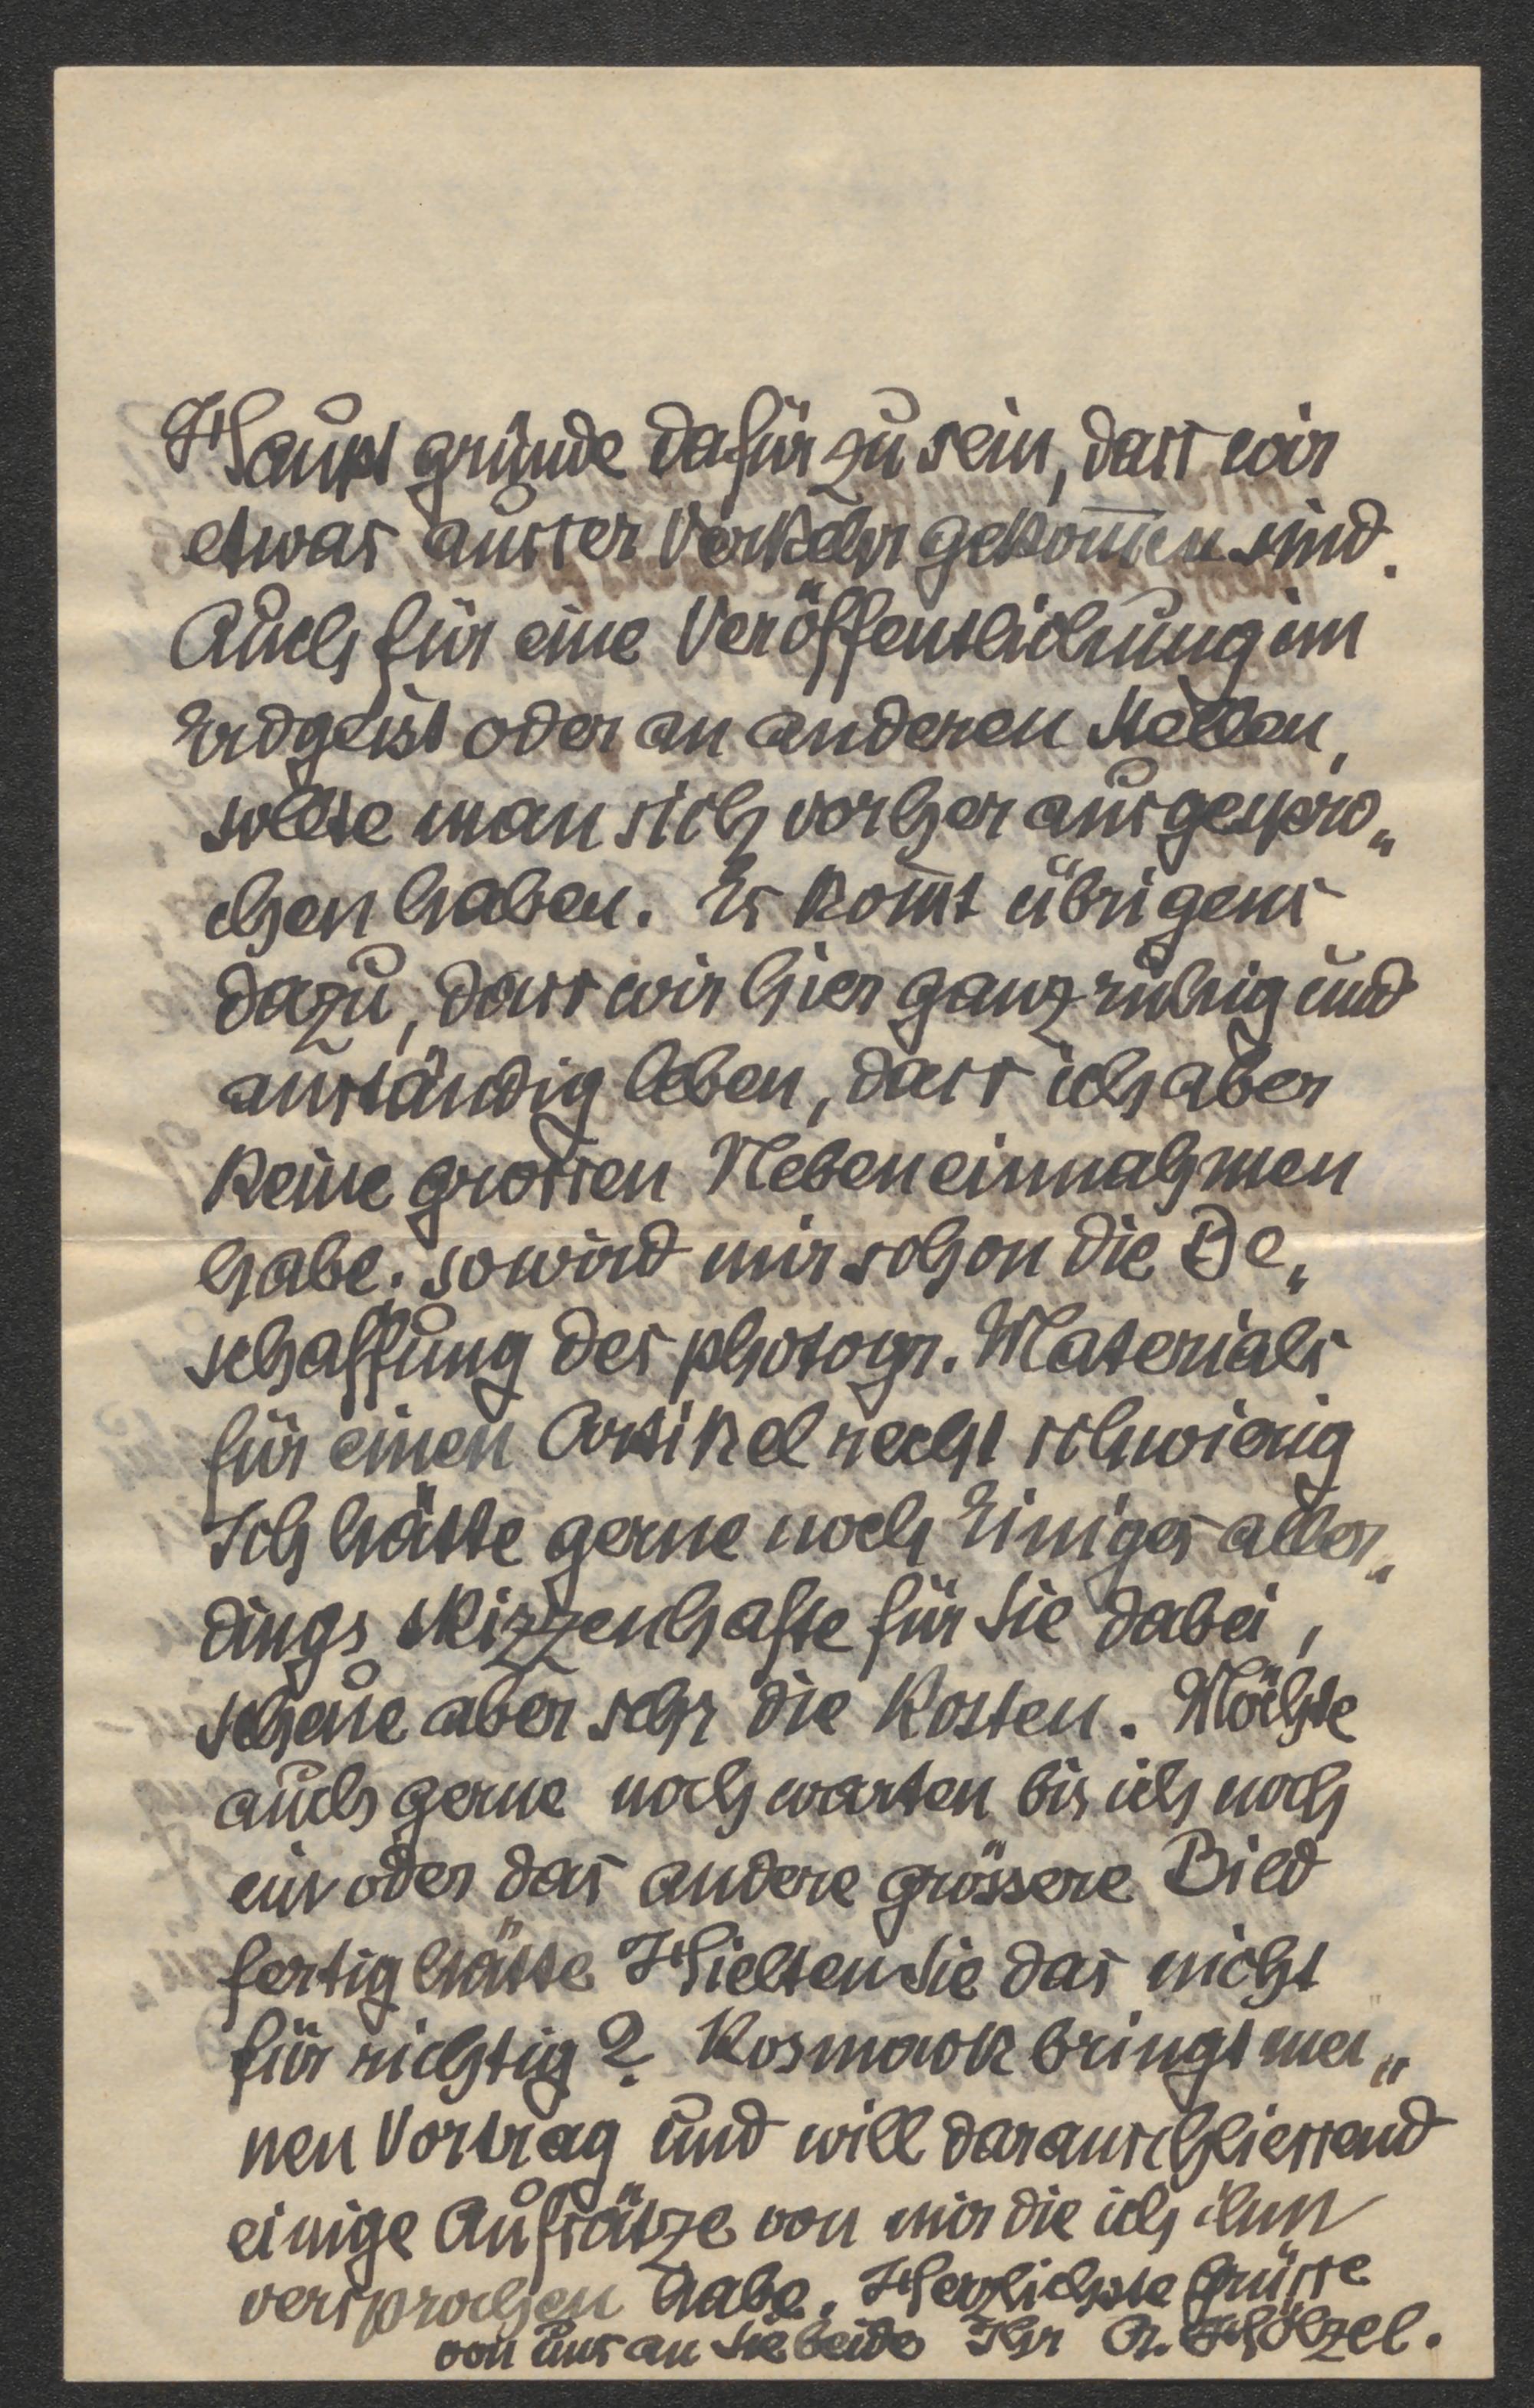 Haupt gründe dafür zu sein, dass wir
etwas ausser Verkehr gekom̄en sind.
Auch für eine Veröffentlichung im
Erdgeist oder an anderen Stellen,
sollte man sich vorher ausgespro„
chen haben. Es kom̄t übrigens
dazu, dass wir hier ganz ruhig und
anständig leben, dass ich aber
keine grossen Nebeneinnahmen
habe. so wird mir schon die Be„
schaffung des photogr. Materials
für einen Artikel recht schwierig
Ich hätte gerne noch Einiges aller„
dings skizzenhafte für Sie dabei,
scheue aber sehr die Kosten. Möchte
auch gerne noch warten bis ich noch
ein oder das andere grössere Bild
fertig hätte Hielten Sie das nicht
für richtig? Kosmack bringt mei„
nen Vortrag und will daranschliessend
einige Aufsätze von mir die ich ihm
versprochen habe. Herzlichste Grüsse
von uns an Sie beide Ihr A. Hölzel.